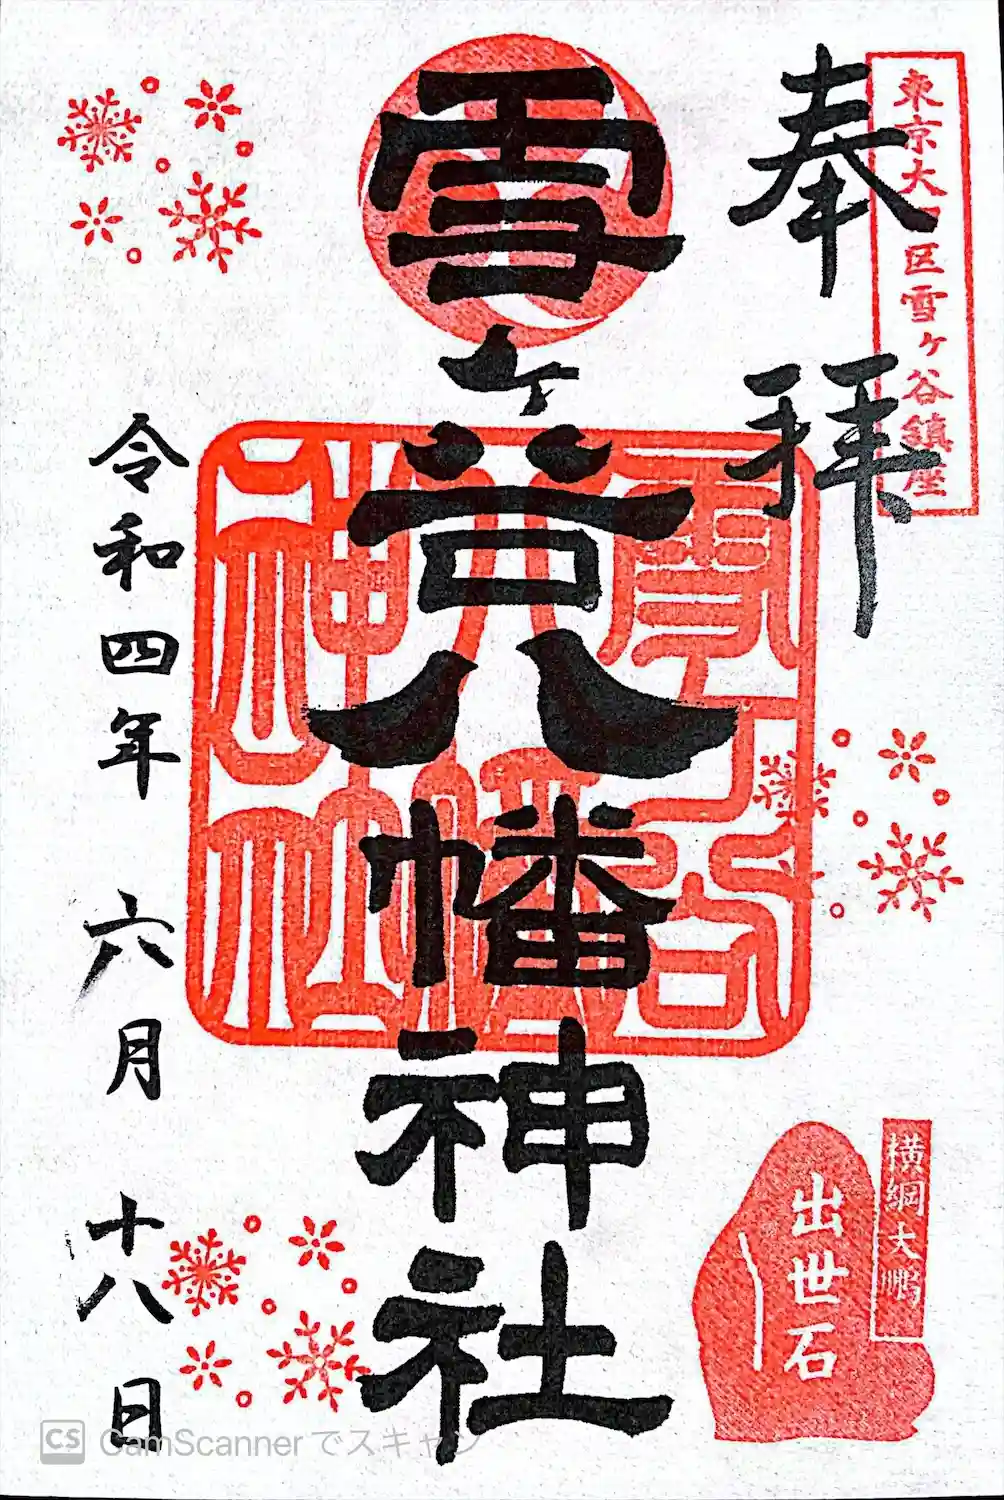 奉拝
東京大田区雪ヶ谷鎮座
雪ヶ谷八幡神社
雪ヶ谷八幡神社
横綱大鵬
出世石
令和四年 六月 十八日
CS CamScannerでスキャン